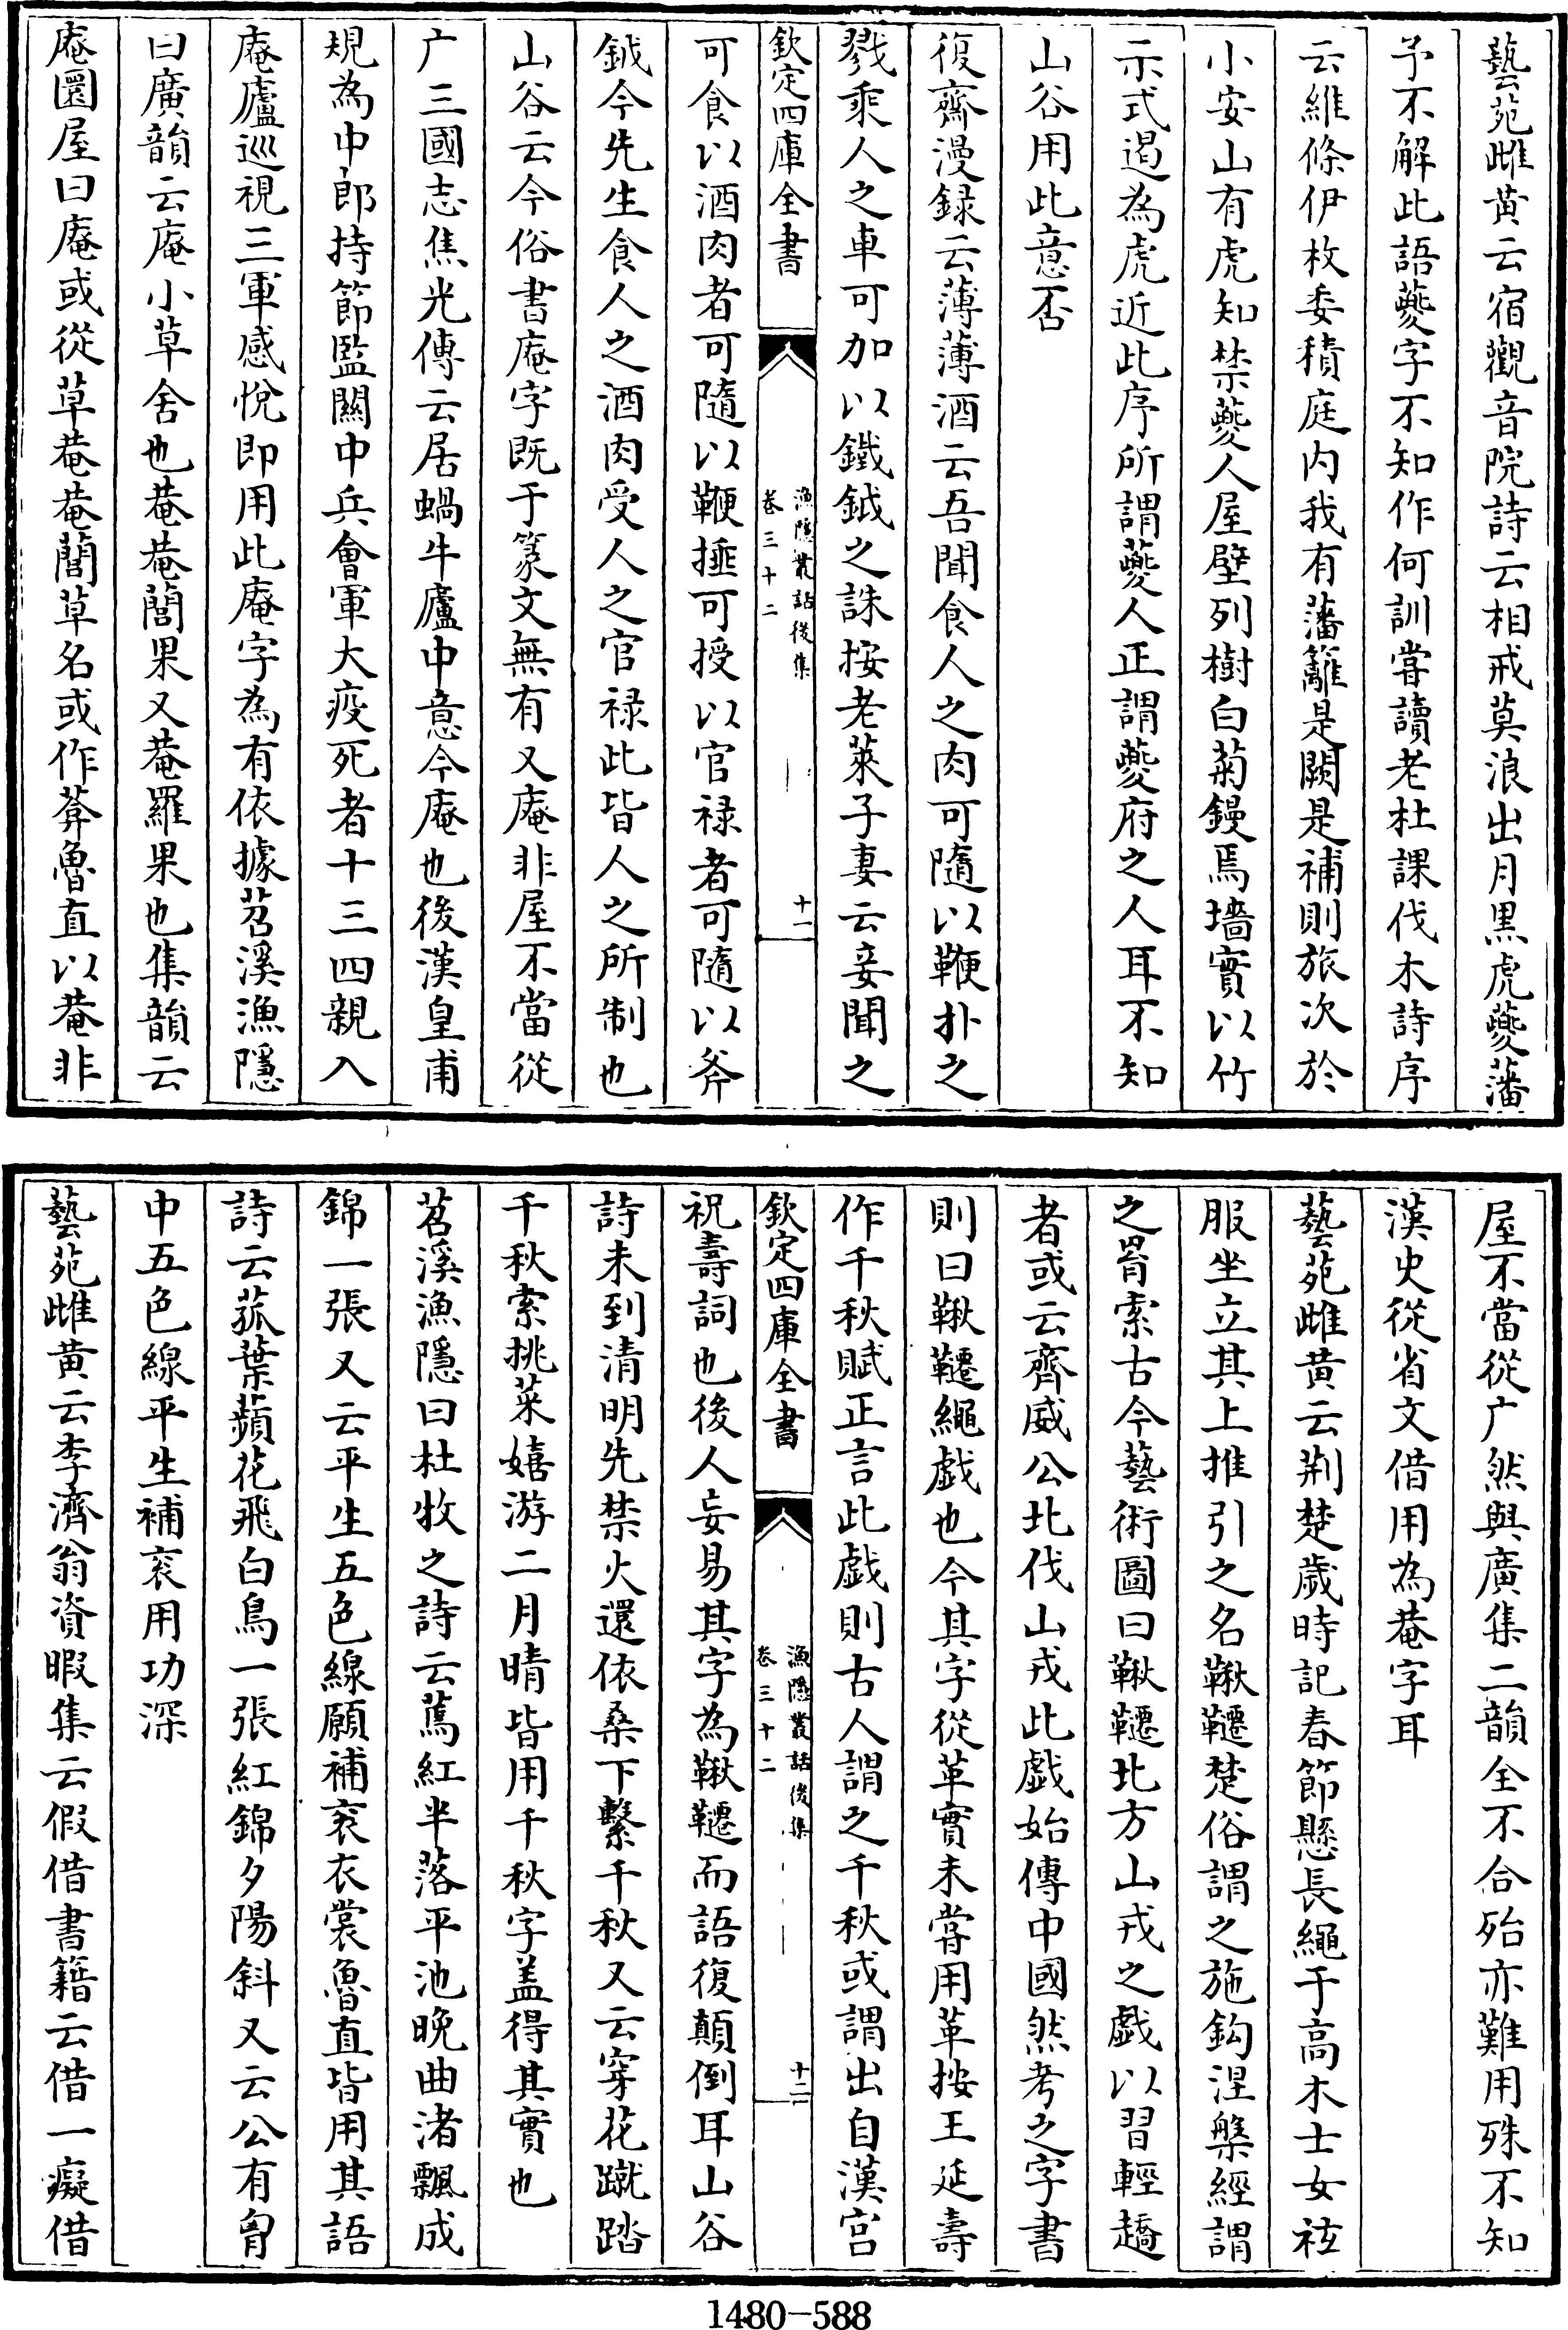 藝苑雌黄云宿觀音院詩云相戒莫浪出月黒虎夔藩
予不解此語夔字不知作何訓嘗讀老杜課伐木詩序
云維條伊枚委積庭内我有藩籬是闕是補則旅次於
小安山有虎知禁夔人屋壁列樹白菊鏝焉墻實以竹
示式遏為虎近此序所謂夔人正謂夔府之人耳不知
山谷用此意否
復齋漫録云薄薄酒云吾聞食人之肉可隨以鞭扑之
戮乘人之車可加以鐵鉞之誅按老萊子妻云妾聞之
欽定四庫全書
漁隱叢話後集
卷三十二
十一
可食以酒肉者可隨以鞭捶可授以官禄者可隨以斧
鉞今先生食人之酒肉受人之官禄此皆人之所制也
山谷云今俗書庵字既于篆文無有又庵非屋不當從
广三國志焦光傳云居蝸牛廬中意今庵也後漢皇甫
規為中郎持節監關中兵會軍大疫死者十三四親入
庵廬巡視三軍感悅即用此庵字為有依據苕溪漁隱
曰廣韻云庵小草舍也菴菴䕡果又菴羅果也集韻云
庵圜屋曰庵或從草菴菴䕡草名或作葊魯直以菴非
屋不當從广然與廣集二韻全不合殆亦難用殊不知
漢史從省文借用為菴字耳
藝苑雌黄云荆楚歲時記春節懸長繩于高木士女袨
服坐立其上推引之名鞦韆楚俗謂之施鈎涅槃經謂
之罥索古今藝術圖曰鞦韆北方山戎之戲以習輕趫
者或云齊威公北伐山戎此戲始傳中國然考之字書
則曰鞦韆繩戲也今其字從革實未嘗用革按王延壽
作千秋賦正言此戲則古人謂之千秋或謂出自漢宫
欽定四庫全書
漁隱叢話後集
卷三十二
十二
祝壽詞也後人妄易其字為鞦韆而語復顛倒耳山谷
詩未到清明先禁火還依桑下繫千秋又云穿花蹴踏
千秋索挑菜嬉游二月晴皆用千秋字盖得其實也
苕溪漁隱曰杜牧之詩云蔫紅半落平池晚曲渚飄成
錦一張又云平生五色線願補衮衣裳魯直皆用其語
詩云菰葉蘋花飛白鳥一張紅錦夕陽斜又云公有胷
中五色線平生補衮用功深
藝苑雌黄云李濟翁資暇集云假借書籍云借一癡借
1480-588